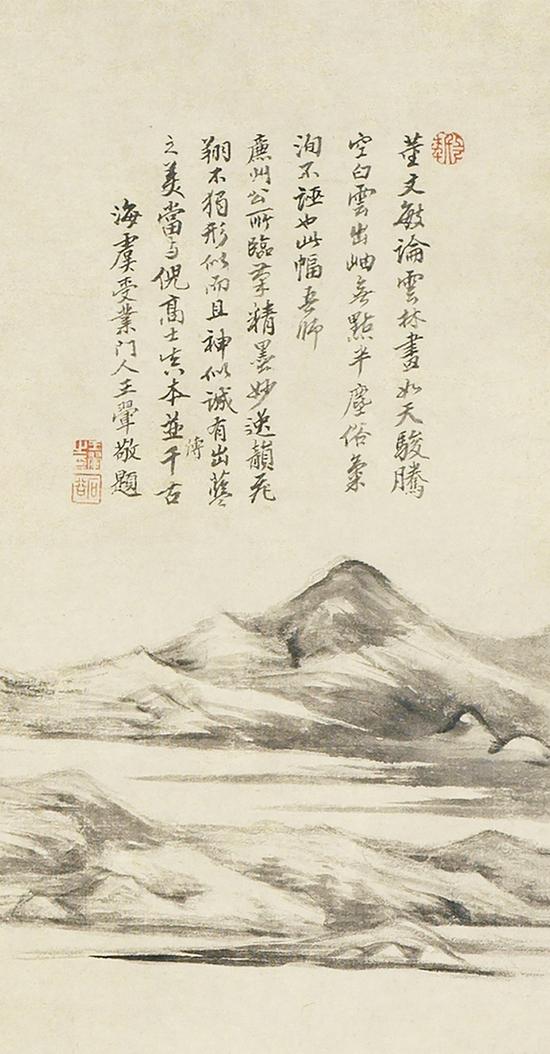 董文敏論雲林畫如天駿騰
空白雲出岫無點半塵俗氣
洵不誣也此幅吾師
廉州公所臨筆精墨妙逸韻飛
翔不獨形似而且神似誠有出藍
之美當与倪高士真本並傳千古
海虞受業門人王翬敬題
王翬之印
石谷